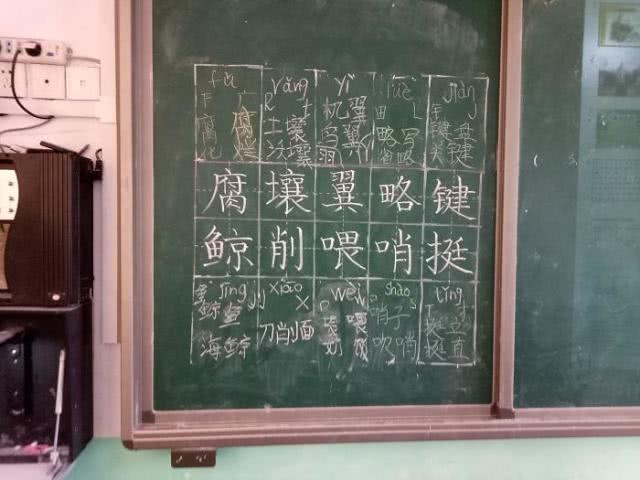 fǔ rǎng yì lüè jiàn
F 广 R 土 机翼 田 L 钅 J
腐 腐 土壤 鸟翼 略写 键盘
化 烂 沃壤 羽 省略 关键
腐 壤 翼 略 键
鲸 削 喂 哨 挺
jīng xiāo wèi shào tǐng
鲸鱼 X 口 喂 哨子 挺立
海鲸 刀削面 喂奶 吹哨 挺直